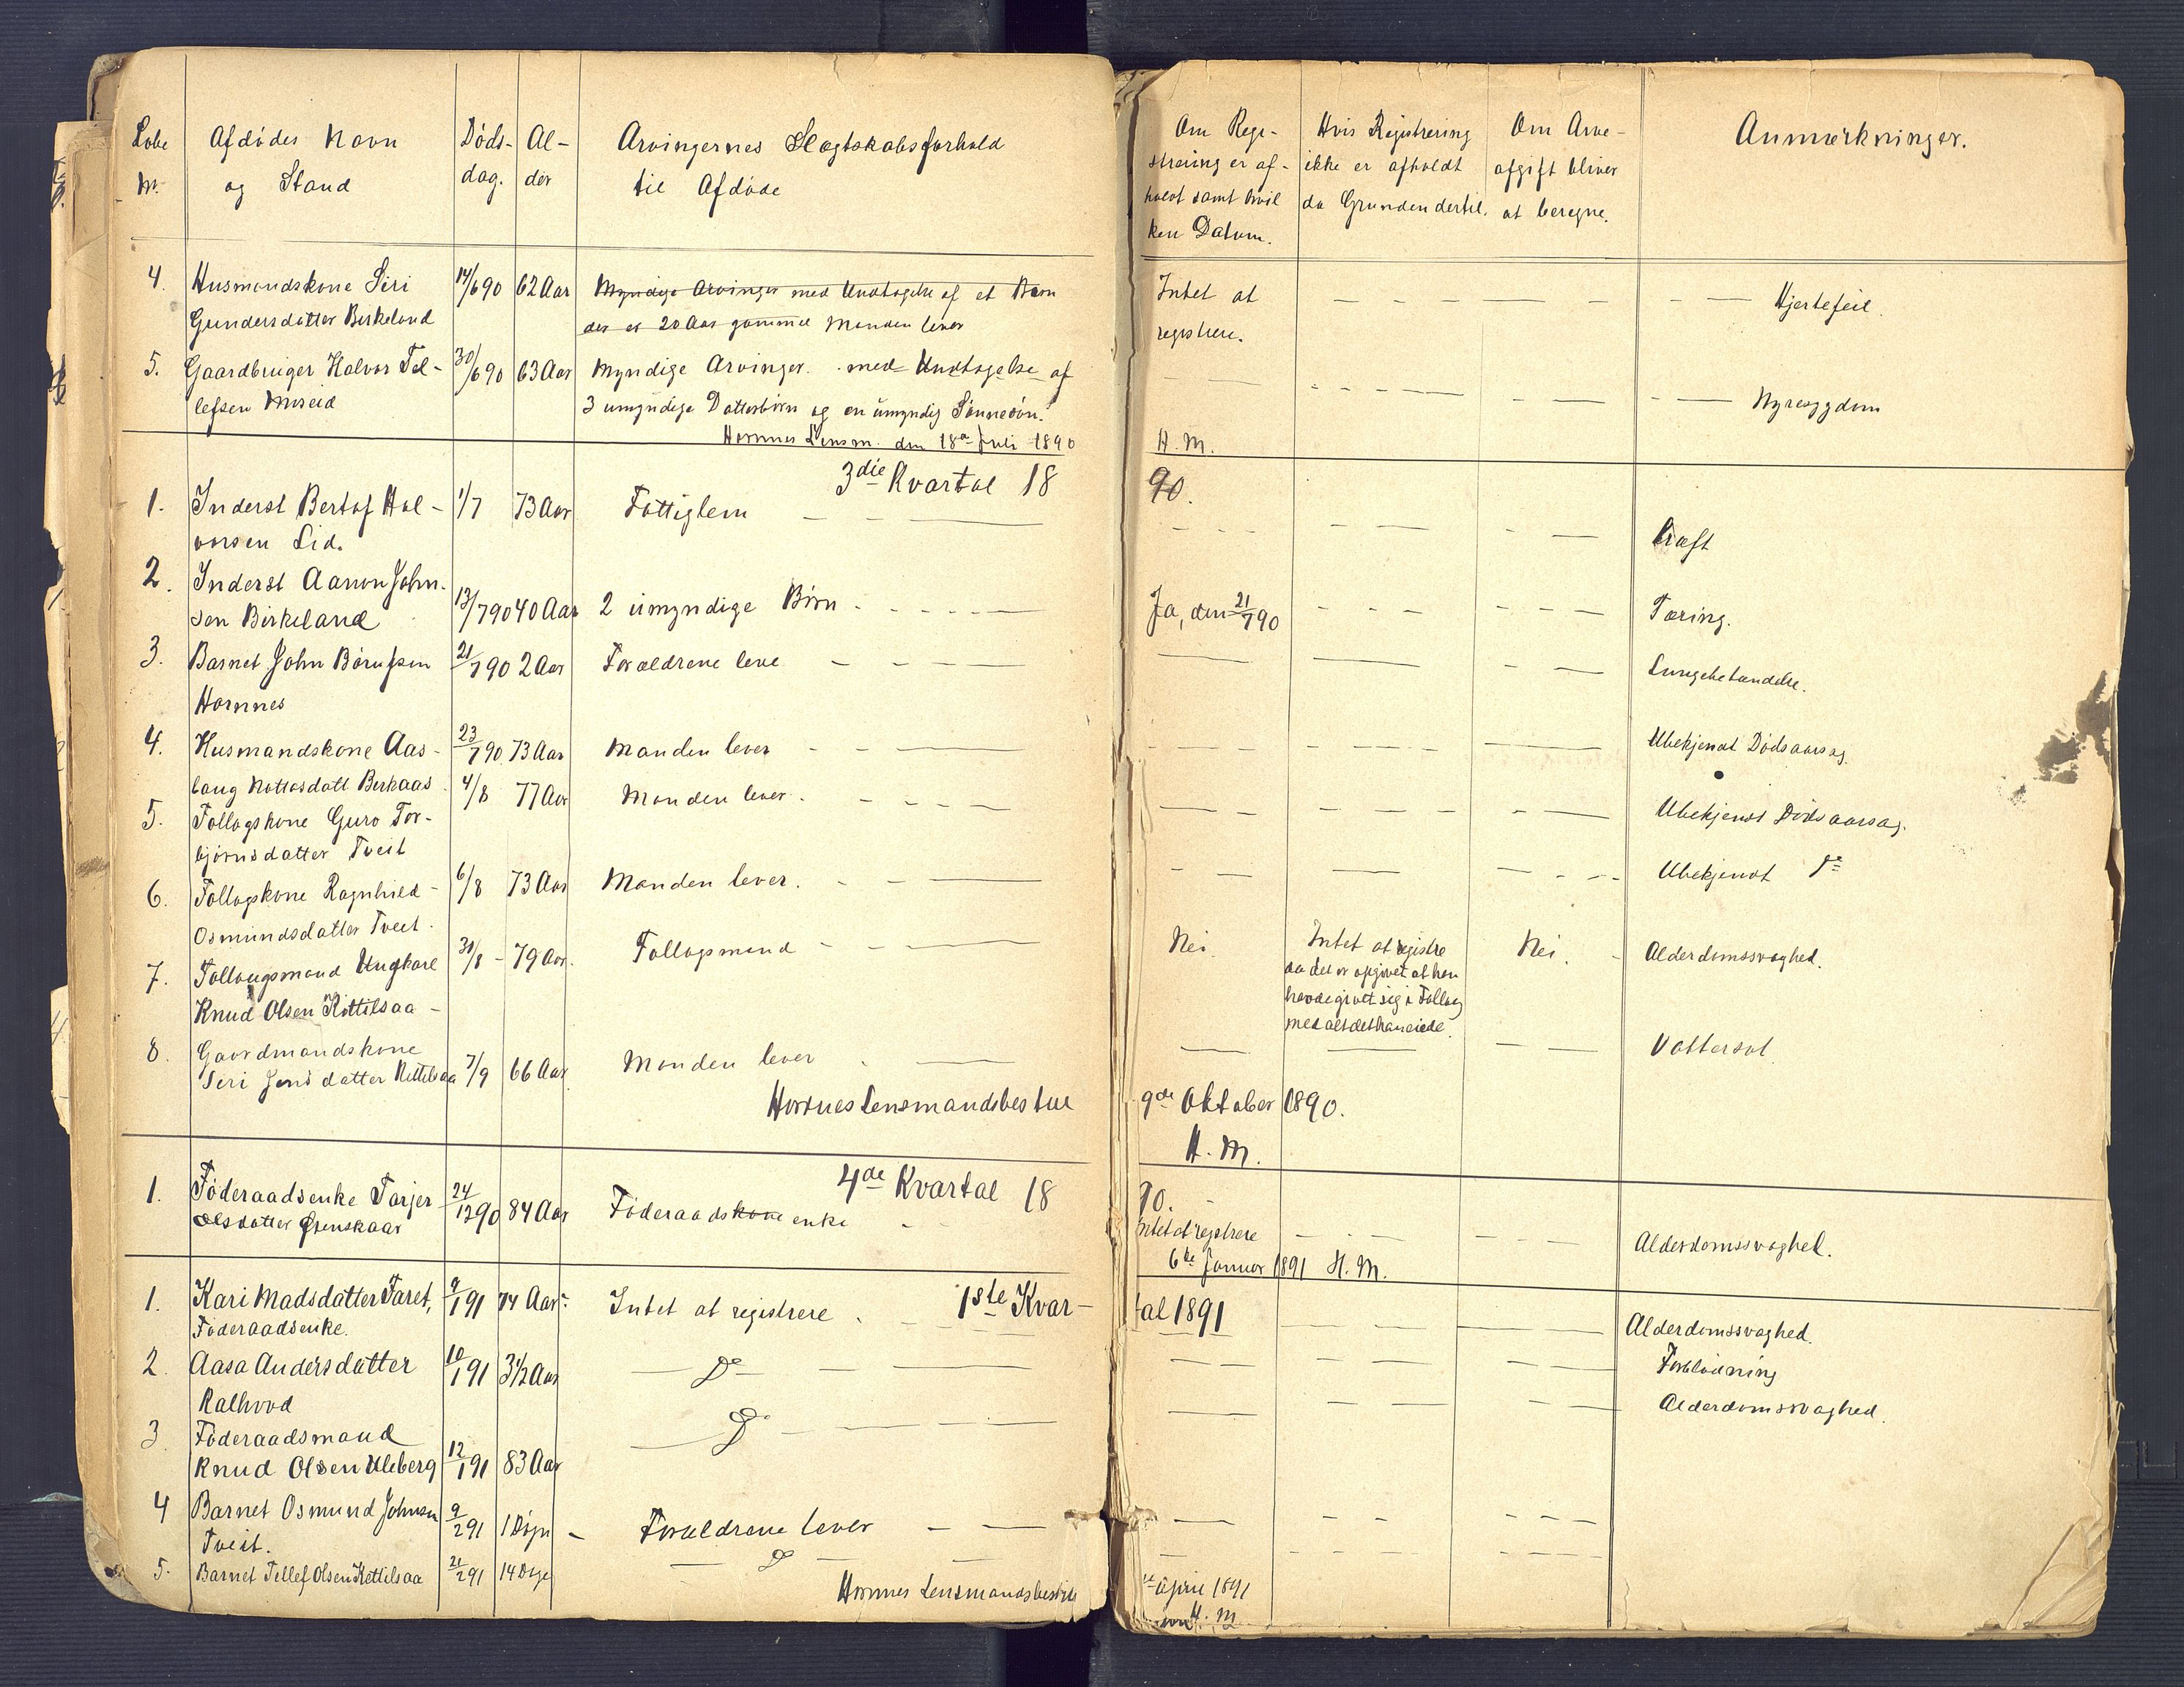 Lobe Nr.
Afdødes Navn
og Stand
Døds-
dag.
Al-
der
Arvingernes Slægtskabsforhold
til Afdøde
Om Regi-
strering er af-
holdt samt hvil
ken Datum.
Hvis Registrering
ikke er afholdt
da Grunden dertil.
Om Arve-
afgift bliver
at beregne.
Anmærkninger.
4. Husmandskone Siri 14/6 90 62 Aar Myndige Arvinger med Undtagelse af et Barn
Gundersdatter Birkeland der er 20 Aar gammel Manden lever
Intet at
registrere.
Hjertefeil.
5. Gaardbruger Halvor Tel- 30/6 90 63 Aar Myndige Arvinger med Undtagelse af
lefsen Moseid 3 umyndige Datterbørn og en umyndig Sønnesøn.
Nyresygdom
Hornnes Lensm. den 18de Juli 1890
H. M.
3die Kvartal 18 90.
1. Inderst Hal- 1/7 73 Aar Fattiglem
vorsen Lid.
Kræft
2. Inderst Aanon John-
sen Birkeland 13/7 90 40 Aar 2 umyndige Børn Ja, den 21/7 90 Tæring.
3. Barnet John Børufsen 21/7 90 2 Aar Forældrene leve Lungebetændelse.
Hornnes
4. Husmandskone Aas- 23/7 90 73 Aar Manden lever Ubekjendt Dødsaarsag.
laug Nottosdatt Berkaas
5. Follogskone Guro Tor- 4/8 77 Aar Manden lever. Ubekjendt Dødsaarsag.
bjørnsdatter Tveit
6. Follogskone Ragnhild 6/8 73 Aar Manden lever. Ubekjendt do
Osmundsdatter Tveit.
7. Follougsmand Ungkarl 30/8 79 Aar. Follogsmand Nei. Nei. Alderdomssvaghed.
Knud Olsen Kittilsaa
Intet at registre
da det er opgivet at han
havde givet sig i Follog
med alt det han eiede
8. Gaardmandskone
Siri Jensdatter Kittilsaa 7/9 66 Aar Manden lever Vattersot.
Hornnes Lensmandsbestill 9de Oktober 1890.
H. M.
4de Kvartal 18 90.
1. Føderaadsenke Tarjer 24/12 90 84 Aar Føderaadskone enke Intet at registrere Alderdomssvaghed.
Olsdatter
6te Januar 1891 H. M.
1ste Kvar- tal 1891
1. Kari Madsdatter Faret, 9/1 91 74 Aar Intet at registrere Alderdomssvaghed.
Føderaadsenke.
2. Aasa Andersdatter 10/1 91 3 1/2 Aar do Forblødning
Kalhovd
3. Føderaadsmand do Alderdomssvaghed.
Knud Olsen Uleberg 12/1 91 83 Aar
4 Barnet Osmund Johnsen 9/2 91 1 Døgn Forældrene lever
Tveit.
5. Barnet Tellef Olsen Kettilsaa 21/2 91 14 Dage do
Hornnes Lensmandsbestill April 1891
H. M.